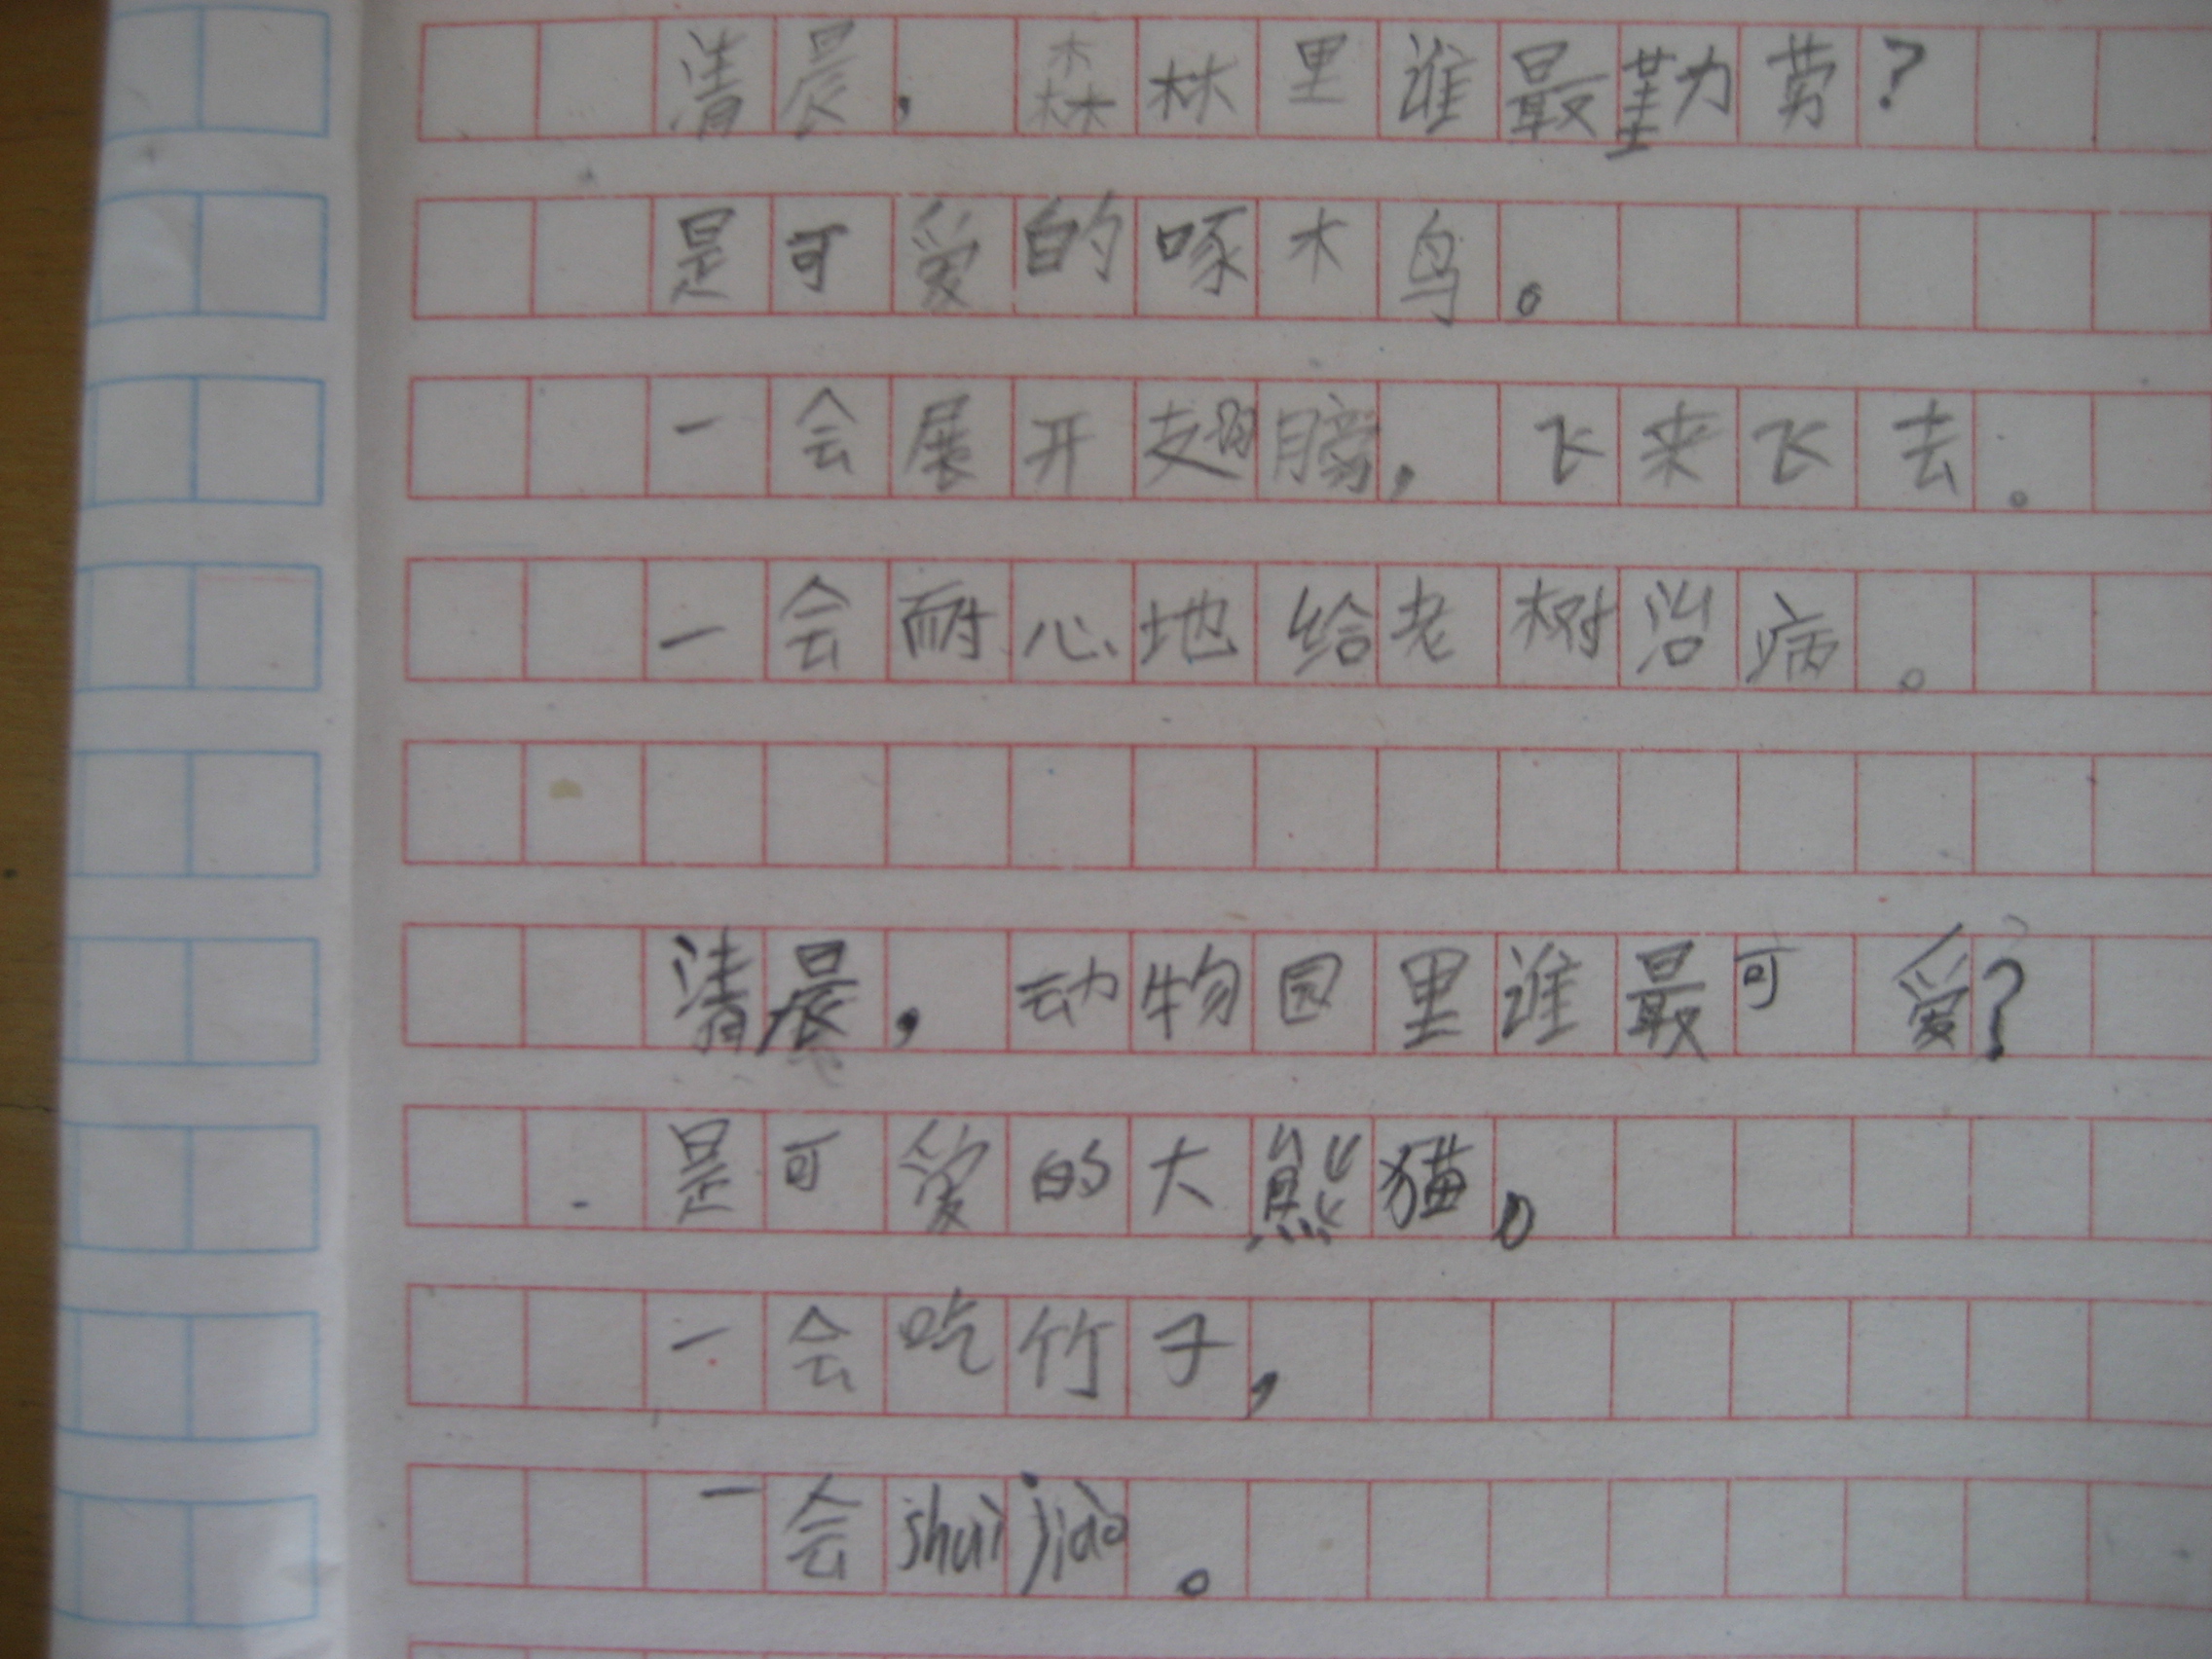 清晨，森林里谁最勤劳？
是可爱的啄木鸟。
一会展开翅膀，飞来飞去。
一会耐心地给老树治病。
清晨，动物园里谁最可爱？
是可爱的大熊猫。
一会吃竹子，
一会shuì jiào。